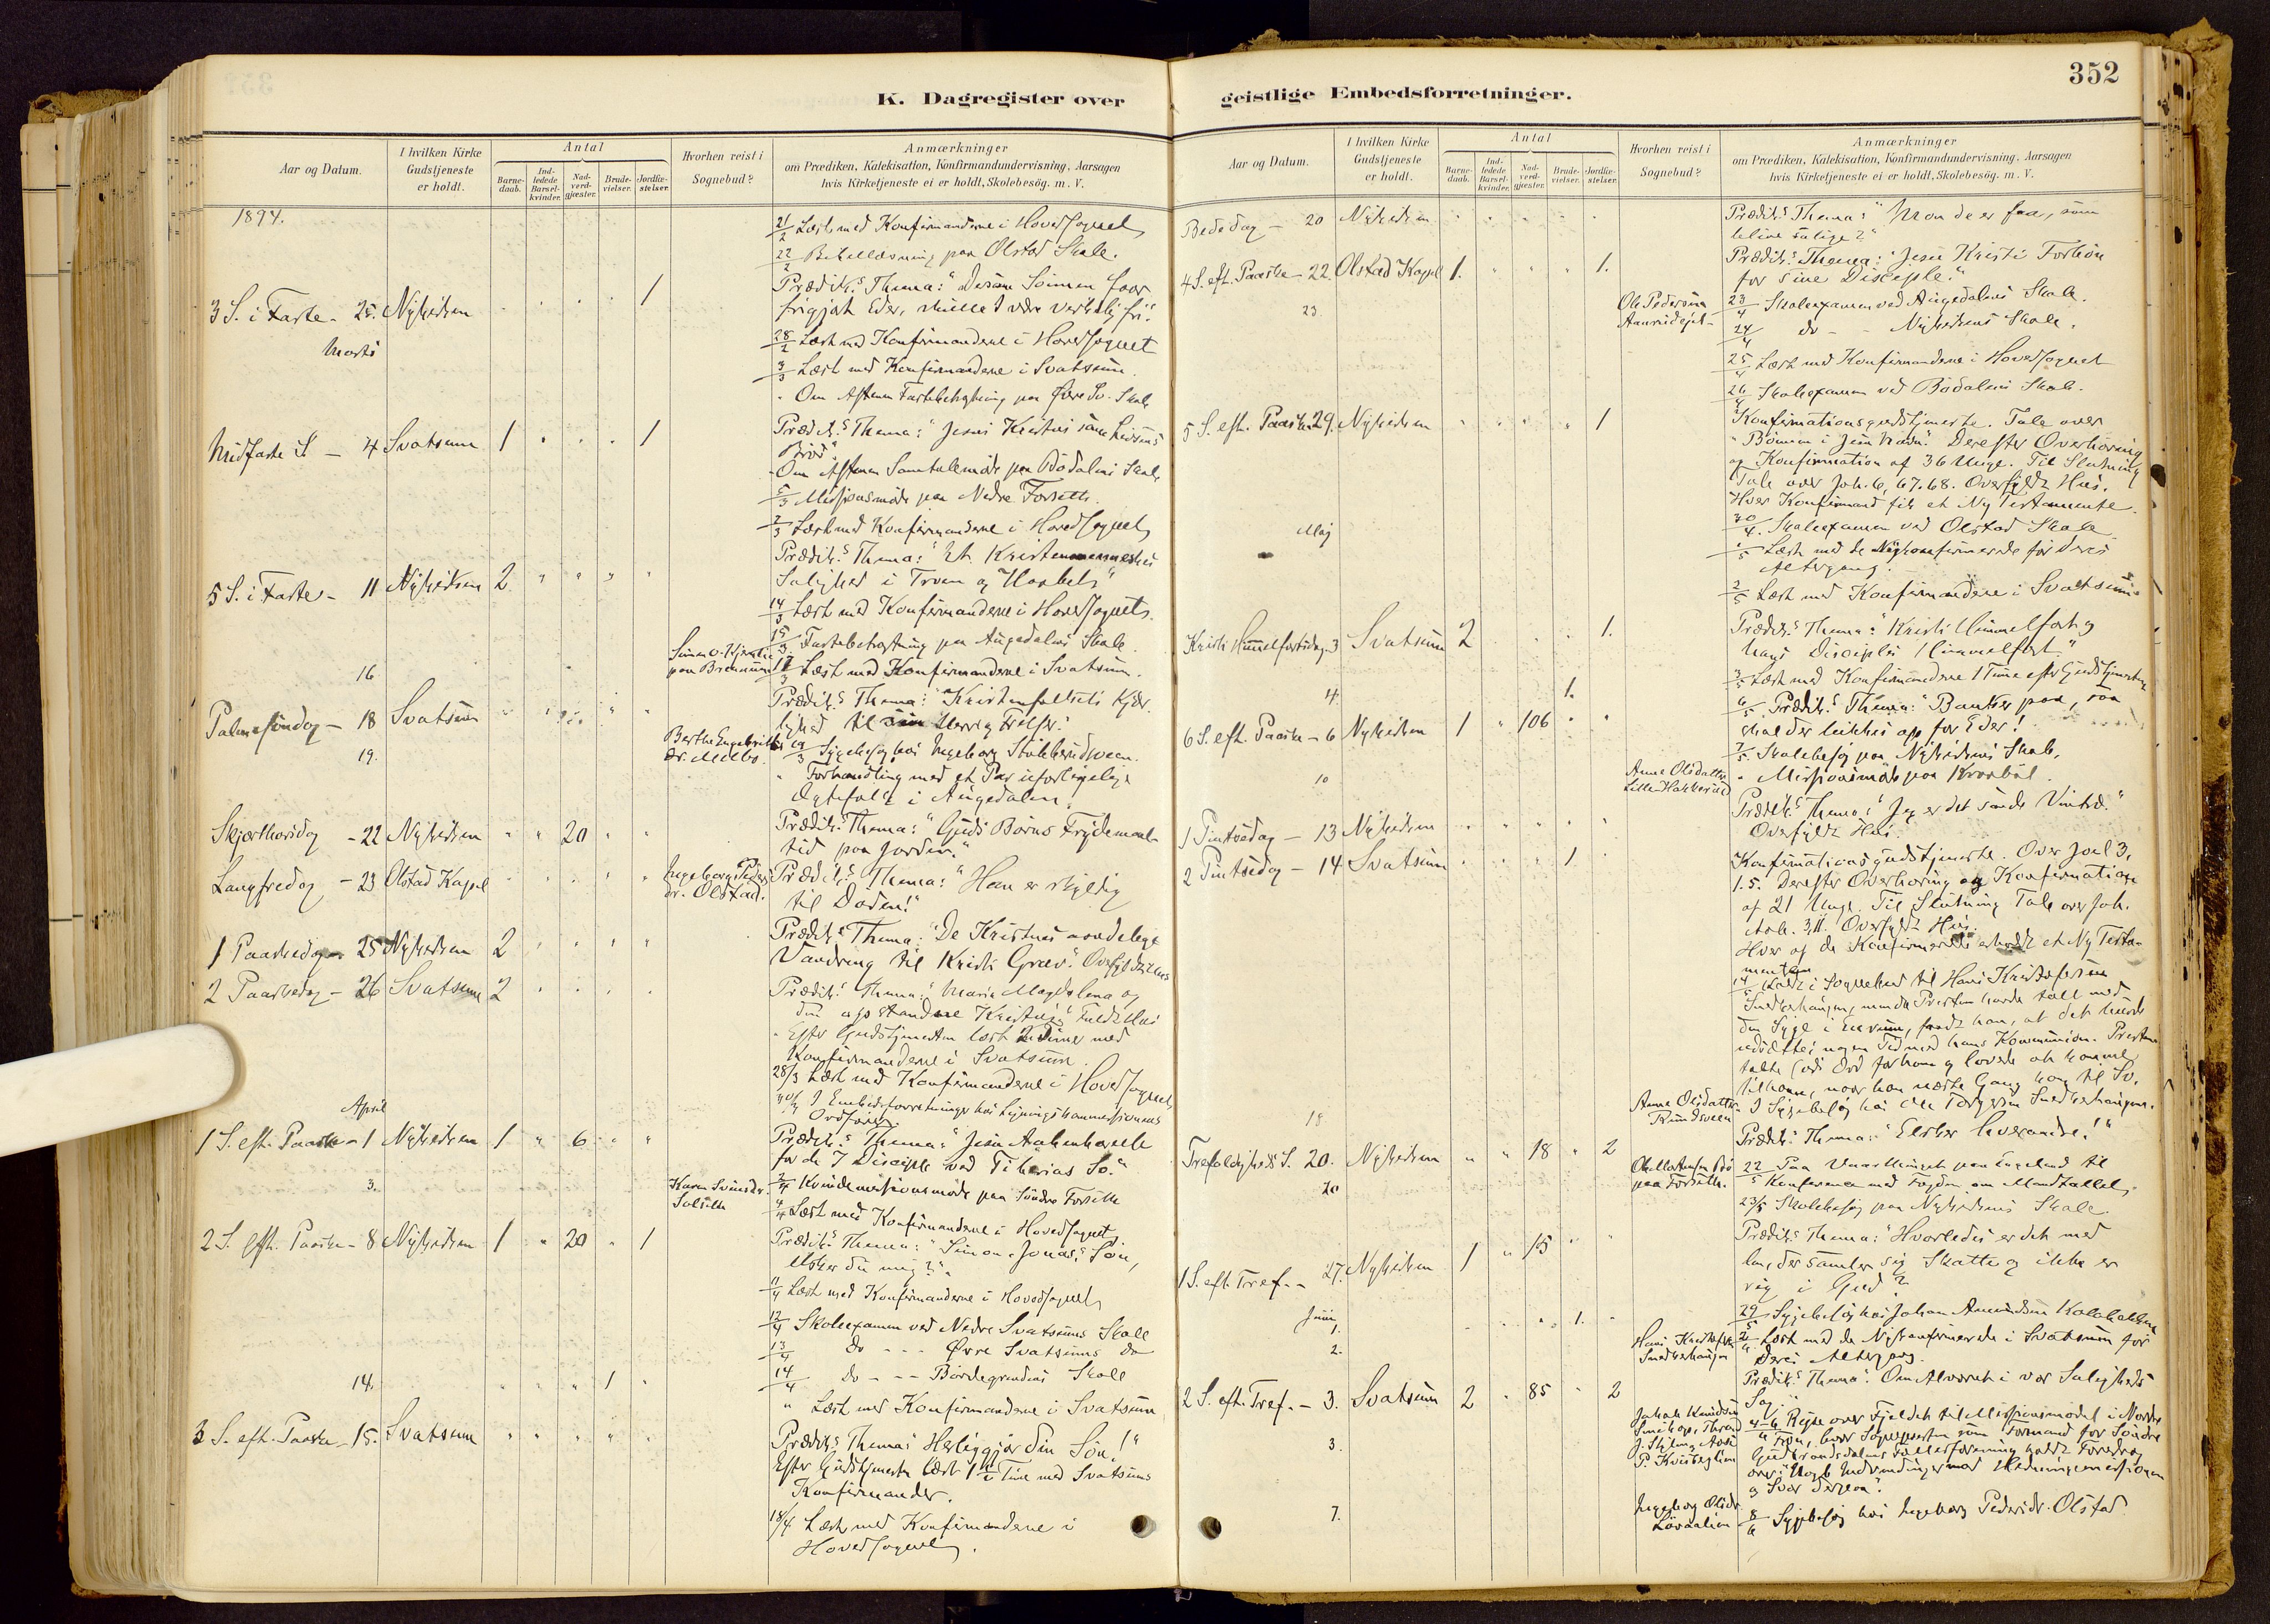 K. Dagregister over
Aar og Datum.
I hvilken Kirke Gudstjeneste er holdt.
Antal
Barne-daab.
Ind-ledede Barsel-kvinder.
Nad-verd-gjæster.
Brude-vielser.
Jordfæ-stelser.
Hvorhen reist i Sognebud?
Anmærkninger
om Prædiken, Katekisation, Konfirmandundervisning, Aarsagen
hvis Kirketjeneste ei er holdt, Skolebesög. m. V.
1894.
21/2 Læst med Konfirmanderne i Hovedsognet
22/2 Bibellæsning paa Olstad Skole.
3 S. i Faste - 25. Nykirken " " " " 1
Prædik.s Thema: "Dersom Sønnen faar
frigjort Eder, skulle I være virkelig fri."
28/2 Læst med Konfirmanderne i Hovedsognet
Marts
3/3 Læst med Konfirmanderne i Svatsum.
" Om Aftenen Fastebetragtning paa Øvre Sv. Skole
Midfaste S - 4 Svatsum 1 " " " 1
Prædik.s Thema: "Jesus Kristus som Livsens
Brød."
- Om Aftenen Samtalemøde paa Bødalens Skole
5/3 Missionsmøde paa Nedre Forsett.
7/3 Læst med Konfirmanderne i Hovedsognet
5 S. i Faste - 11 Nykirken 2 " " " "
Prædik.s Thema: "Et Kristenmenneskes
Salighed i Troen og Haabet."
14/3 Læst med Konfirmanderne i Hovedsognet.
15/3 Fastebetragtning paa Augedalens Skole.
16
paa Brennum
17/3 Læst med Konfirmanderne i Svatsum.
Palmesøndag - 18 Svatsum
Prædik.s Thema: "Kristenfolkets Kjær-
lighed til sin Herre og Frelser."
19.
Berthe Engebrets
dr. Melbo.
19/3 Sygebesøg hos Ingeborg Stokkerudsveen.
" Forhandling med et Par uforligelige
Ægtefolk i Augedalen.
Skjærthorsdag - 22 Nykirken " " 20 " "
Prædik.s Thema: "Guds Børns Frydemaal-
tid paa Jorden."
Langfredag - 23 Olstad Kapel " " " " "
Ingeborg Peders
dr. Olstad.
Prædik.s Thema: "Han er skyldig
til Døden!"
1 Paaskedag - 25 Nykirken 2 " " " "
Prædik.s Thema: "De Kristnes aandelige
Vandring til Kristi Grav." Overfyldt Hus
2 Paaskedag - 26 Svatsum 2 " " " "
Prædik.s Thema: "Maria Magdalena og
den opstandne Kristus." Fuldt Hus
- Efter Gudstjenesten læst 2 Timer med
Konfirmanderne i Svatsum.
28/3 Læst med Konfirmanderne i Hovedsognet
I Embedsforretninger hos Ligningskommissionens
Ordfører.
April
1 S. eft. Paaske - 1 Nykirken 1 " 6 " "
Prædik.s Thema: "Jesu Aabenbarelse
for de 7 Disciple ved Tiberias Sø."
3.
Karen
3/4 Kvindemissionsmøde paa Søndre Forsette
4/4 Læst med Konfirmanderne i Hovedsognet.
2 S. eft. Paaske - 8 Nykirken 1 " 20 " 1
Prædik.s Thema: "Simon Jonas' Søn,
elsker du mig?"
11/4 Læst med Konfirmanderne i Hovedsognet
12/4 Skoleexamen ved Nedre Svatsums Skole
13/4 do - - - Øvre Svatsums do
14. " " " 1 "
14/4 do - - - Bårdsgrendens Skole
" Læst med Konfirmanderne i Svatsum
3 S. eft. Paaske - 15. Svatsum " " " " "
Prædik.s Thema: "Herliggjør din Søn!"
Efter Gudstjenesten læst 1 Time med Svatsums
Konfirmander.
18/4 Læst med Konfirmanderne i
Hovedsognet.
geistlige Embedsforretninger.
352
Aar og Datum.
I hvilken Kirke Gudstjeneste er holdt.
Antal
Barne-daab.
Ind-ledede Barsel-kvinder.
Nad-verd-gjæster.
Brude-vielser.
Jordfæ-stelser.
Hvorhen reist i Sognebud?
Anmærkninger
om Prædiken, Katekisation, Konfirmandundervisning, Aarsagen
hvis Kirketjeneste ei er holdt, Skolebesög. m. V.
Bededag - 20 Nykirken " " " " "
Prædik.s Thema: "Mon de er faa, som
blive salige?"
4 S. eft. Paaske - 22. Olstad Kapel 1. " " " 1.
Prædik.s Thema: "Jesu Kristi Forbøn
for sine Disciple."
23.
Ole Pedersen
23/4 Skoleexamen ved Augedalens Skole.
24/4 do - - Nykirkens Skole.
25/4 Læst med Konfirmanderne i Hovedsognet
26/4 Skoleexamen ved Bødalens Skole.
5 S. eft. Paaske 29. Nykirken " " " " 1
Konfirmationsgudstjeneste. Tale over
"Bønnen i Jesu Navn." Derefter Overhøring
og Konfirmation af 36 Unge. Til Slutning
Tale over Joh. 6, 67.68. Overfyldt Hus.
Hver Konfirmand fik et Ny Testamente.
30/4. Skoleexamen ved Olstad Skole
Maj
1/5 Læst med de Nykonfirmerede før deres
Altergang.
2/5 Læst med Konfirmanderne i Svatsum
Kristi Himmelfartsdag 3 Svatsum 2 " " " 1.
Prædik.s Thema: "Kristi Himmelfart og
hans Disciples Himmelfart."
3/5 Læst med Konfirmanderne 1 Time efter Gudstjenesten
4. 1.
6 S. eft. Paaske - 6 Nykirken 1 " 106 " "
6/5 Prædik.s Thema: "Banker paa, saa
skal der lukkes op for Eder!"
7/5. Skolebesøg paa Nykirkens Skole.
10
Anne Olsdatter
Lille Hakkerud
" Missionsmøde paa Kraabøl.
1 Pintsedag - 13 Nykirken " " " " "
Prædik.s Thema: "Jeg er det sande Vintræ."
Overfyldt Hus.
2 Pintsedag - 14 Svatsum " " " 1 "
Konfirmationsgudstjeneste. Over Joel 3,
1.5. Derefter Overhøring og Konfirmation
af 21 Unge. Til Slutning Tale over Joh.
Aab. 3,11. Overfyldt Hus.
Hver af de Konfirmerede erholdt et Ny Testa-
mente
14/5 Kaldt i Sognebud til Hans Kristofersen
Snekkerhaugen, men da Præsten havde talt med
den Syge i Enrum, fandt han, at det burde
udsættes nogen Tid med hans Kommunion. Præsten
talte Guds Ord for ham og lovede at komme
til ham, naar han næste Gang kom til Sv.
18
Anne Olsdatter
Rundsveen
Trefoldigheds S. 20. Nykirken " " 18 " 2
Prædik.s Thema: "Elsker hverandre!"
20
paa Forsette.
22/5 Paa Vaartinget paa Engelund til
Konference med Fogden om Mandtallet.
23/5 Skolebesøg paa Nykirkens Skole
1 S. eft. Tref. - 27. Nykirken 1 " 15 " "
Prædik.s Thema: "Hvorledes er det med
den, der samler sig Skatte og ikke er
rig i Gud?"
Juni
1. " " " 1. "
29/5 Sygebesøg hos Johan Amundsen
2.
Hans Kristofersen
Snekkerhaugen
2/6 Læst med de Nykonfirmerede i Svatsum før
deres Altergang.
2 S. eft. Tref. - 3. Svatsum 2 " 85 " 2
Prædik.s Thema: "Om Alvoret i vor Saligheds
Sag."
3.
Johan Knudsen
4-6/6 Rejse over Fjeldet til Missionsmødet i Nordre
Fron, hvor Sognepræsten som Formand for Søndre
Gudbrandsdalens Fællesforening holdt Foredrag
over: "Nogle Indvendinger mod Hedningemissionen
og Svar derpaa."
7.
Ingeborg Olsdr.
8/6 Sygebesøg hos Ingeborg Pedersdr. Olstad